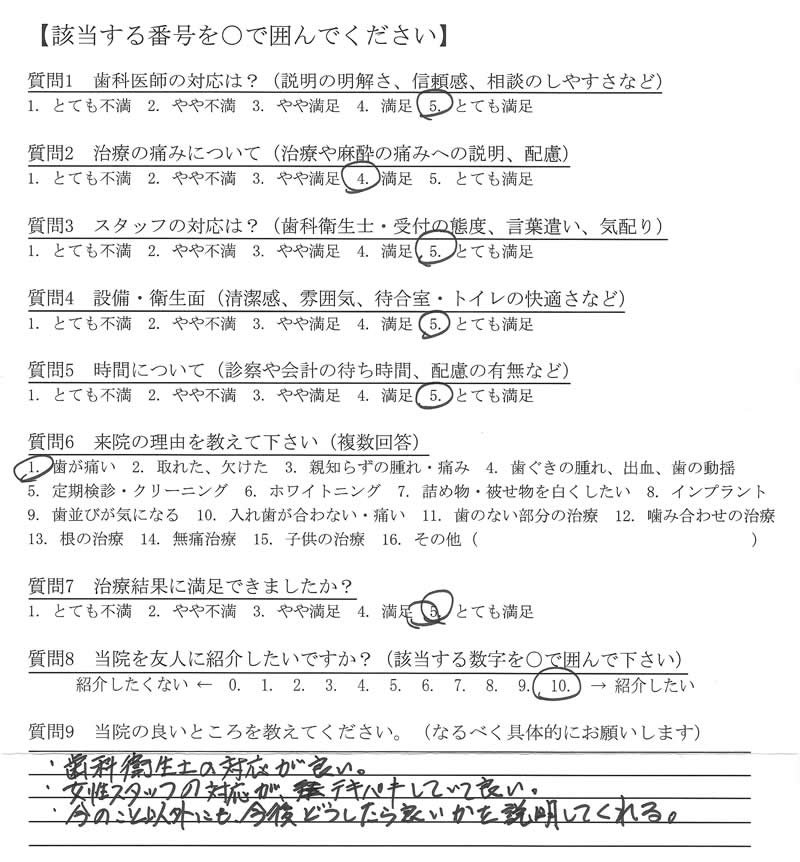 【該当する番号を〇で囲んでください】
質問1　歯科医師の対応は？（説明の明解さ、信頼感、相談のしやすさなど）
1. とても不満　2. やや不満　3. やや満足　4. 満足　5. とても満足
質問2　治療の痛みについて（治療や麻酔の痛みへの説明、配慮）
1. とても不満　2. やや不満　3. やや満足　4. 満足　5. とても満足
質問3　スタッフの対応は？（歯科衛生士・受付の態度、言葉遣い、気配り）
1. とても不満　2. やや不満　3. やや満足　4. 満足　5. とても満足
質問4　設備・衛生面（清潔感、雰囲気、待合室・トイレの快適さなど）
1. とても不満　2. やや不満　3. やや満足　4. 満足　5. とても満足
質問5　時間について（診察や会計の待ち時間、配慮の有無など）
1. とても不満　2. やや不満　3. やや満足　4. 満足　5. とても満足
質問6　来院の理由を教えて下さい（複数回答）
1. 歯が痛い　2. 取れた、欠けた　3. 親知らずの腫れ・痛み　4. 歯ぐきの腫れ、出血、歯の動揺
5. 定期検診・クリーニング　6. ホワイトニング　7. 詰め物・被せ物を白くしたい　8. インプラント
9. 歯並びが気になる　10. 入れ歯が合わない・痛い　11. 歯のない部分の治療　12. 噛み合わせの治療
13. 根の治療　14. 無痛治療　15. 子供の治療　16. その他（　　　　　　　　　　　　　　　　）
質問7　治療結果に満足できましたか？
1. とても不満　2. やや不満　3. やや満足　4. 満足　5. とても満足
質問8　当院を友人に紹介したいですか？（該当する数字を〇で囲んで下さい）
紹介したくない ← 0. 1. 2. 3. 4. 5. 6. 7. 8. 9. 10. → 紹介したい
質問9　当院の良いところを教えてください。（なるべく具体的にお願いします）
・歯科衛生士の対応が良い。
・女性スタッフの対応が、テキパキしていて良い。
・今のこと以外にも、今後どうしたら良いかを説明してくれる。